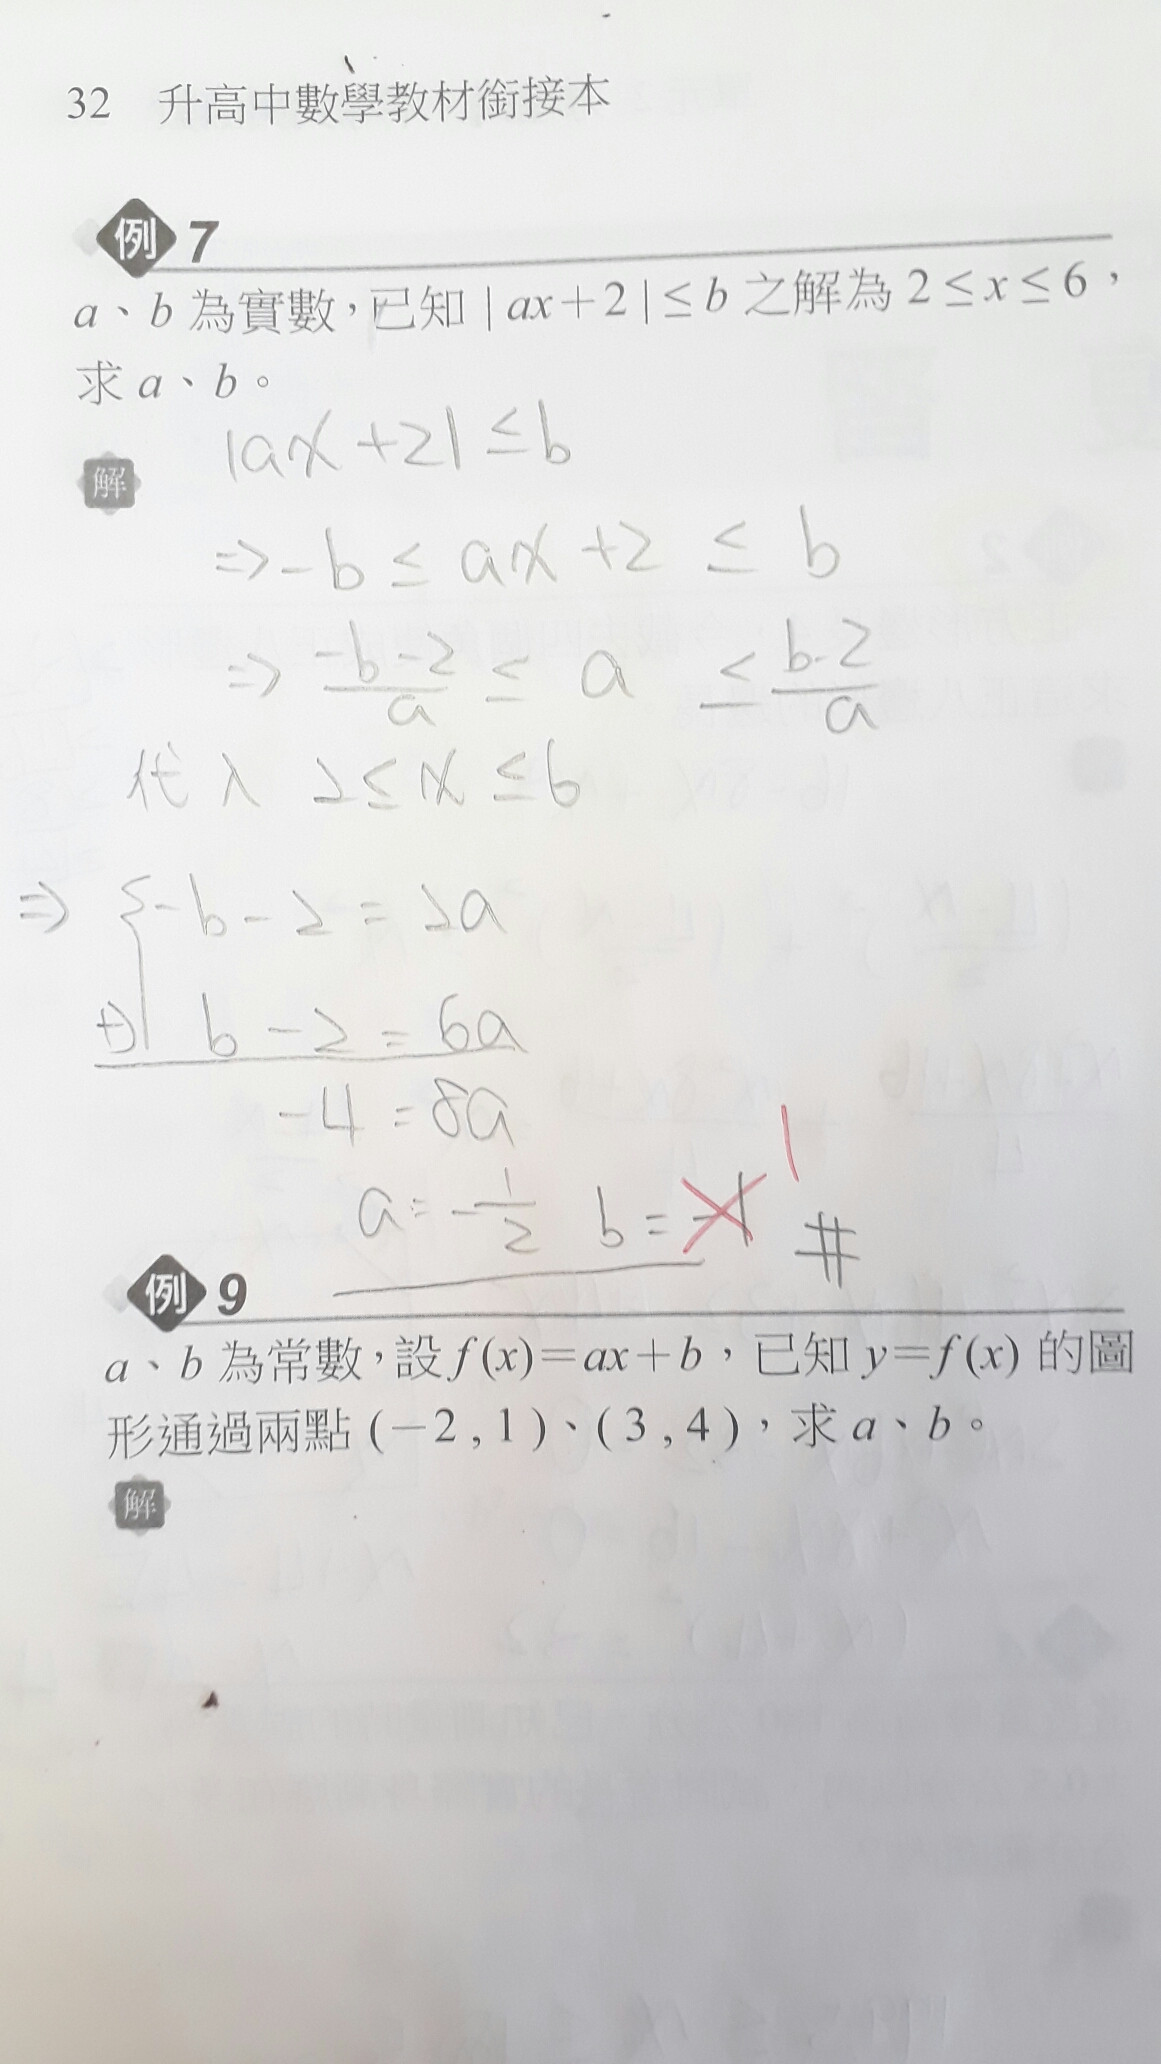 32 升高中數學教材銜接本
例 7
a、b 為實數,已知 | ax+2 | ≤ b 之解為 2 ≤ x ≤ 6,
求 a、b。
解
|ax+2| ≤ b
⇒ -b ≤ ax+2 ≤ b
⇒ (-b-2)/a ≤ a ≤ (b-2)/a
代入 2≤x≤6
⇒ { -b-2 = 2a
+) b-2 = 6a
-4 = 8a
1
a = -1/2 b = -1 #
例 9
a、b 為常數,設 f(x)=ax+b,已知 y=f(x) 的圖
形通過兩點 (-2,1)、(3,4),求 a、b。
解